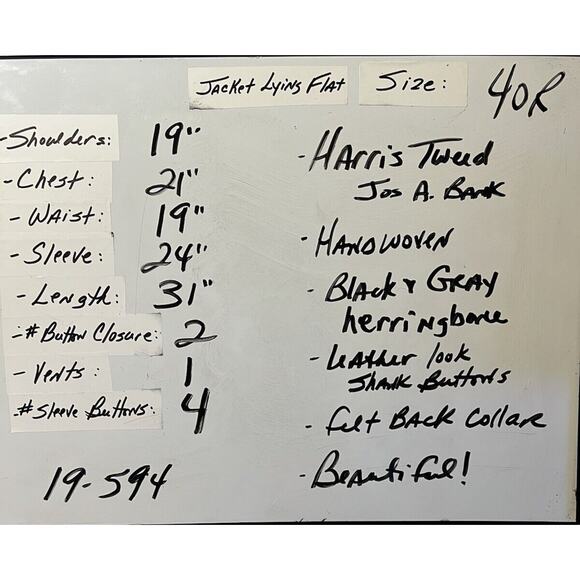 Jacket Lying Flat
Size: 40R
- Shoulders: 19"
- Chest: 21"
- Waist: 19"
- Sleeve: 24"
- Length: 31"
- # Button Closure: 2
- Vents: 1
- # Sleeve Buttons: 4
19-594
- Harris Tweed
Jos A. Bank
- Handwoven
- Black & Gray
herringbone
- Leather look
Shank Buttons
- Felt Back Collar
- Beautiful!